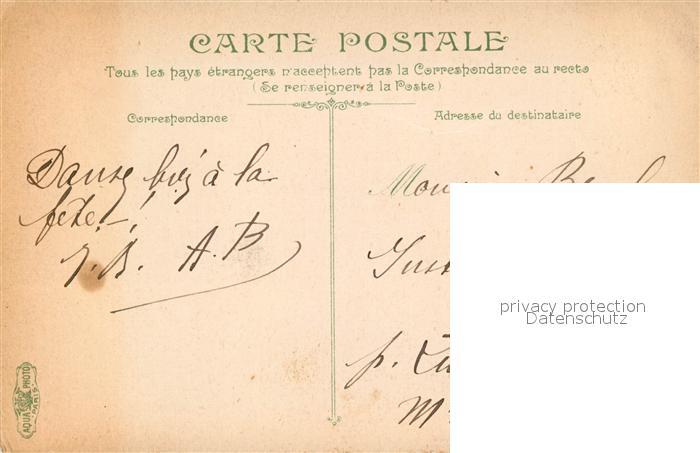 CARTE POSTALE
Tous les pays étrangers n'acceptent pas la Correspondance au recto
(Se renseigner à la Poste)
Correspondance
Adresse du destinataire
Danse à la
fête.-!
J.B. A.B
p.
privacy protection
Datenschutz
AQUA PHOTO
PARIS